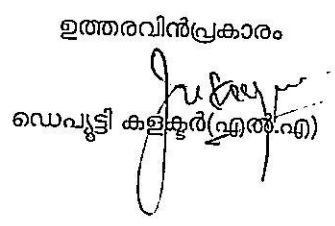 ഉത്തരവിൻപ്രകാരം
ഡെപ്യൂട്ടി കളക്ടർ(എൽ.എ)